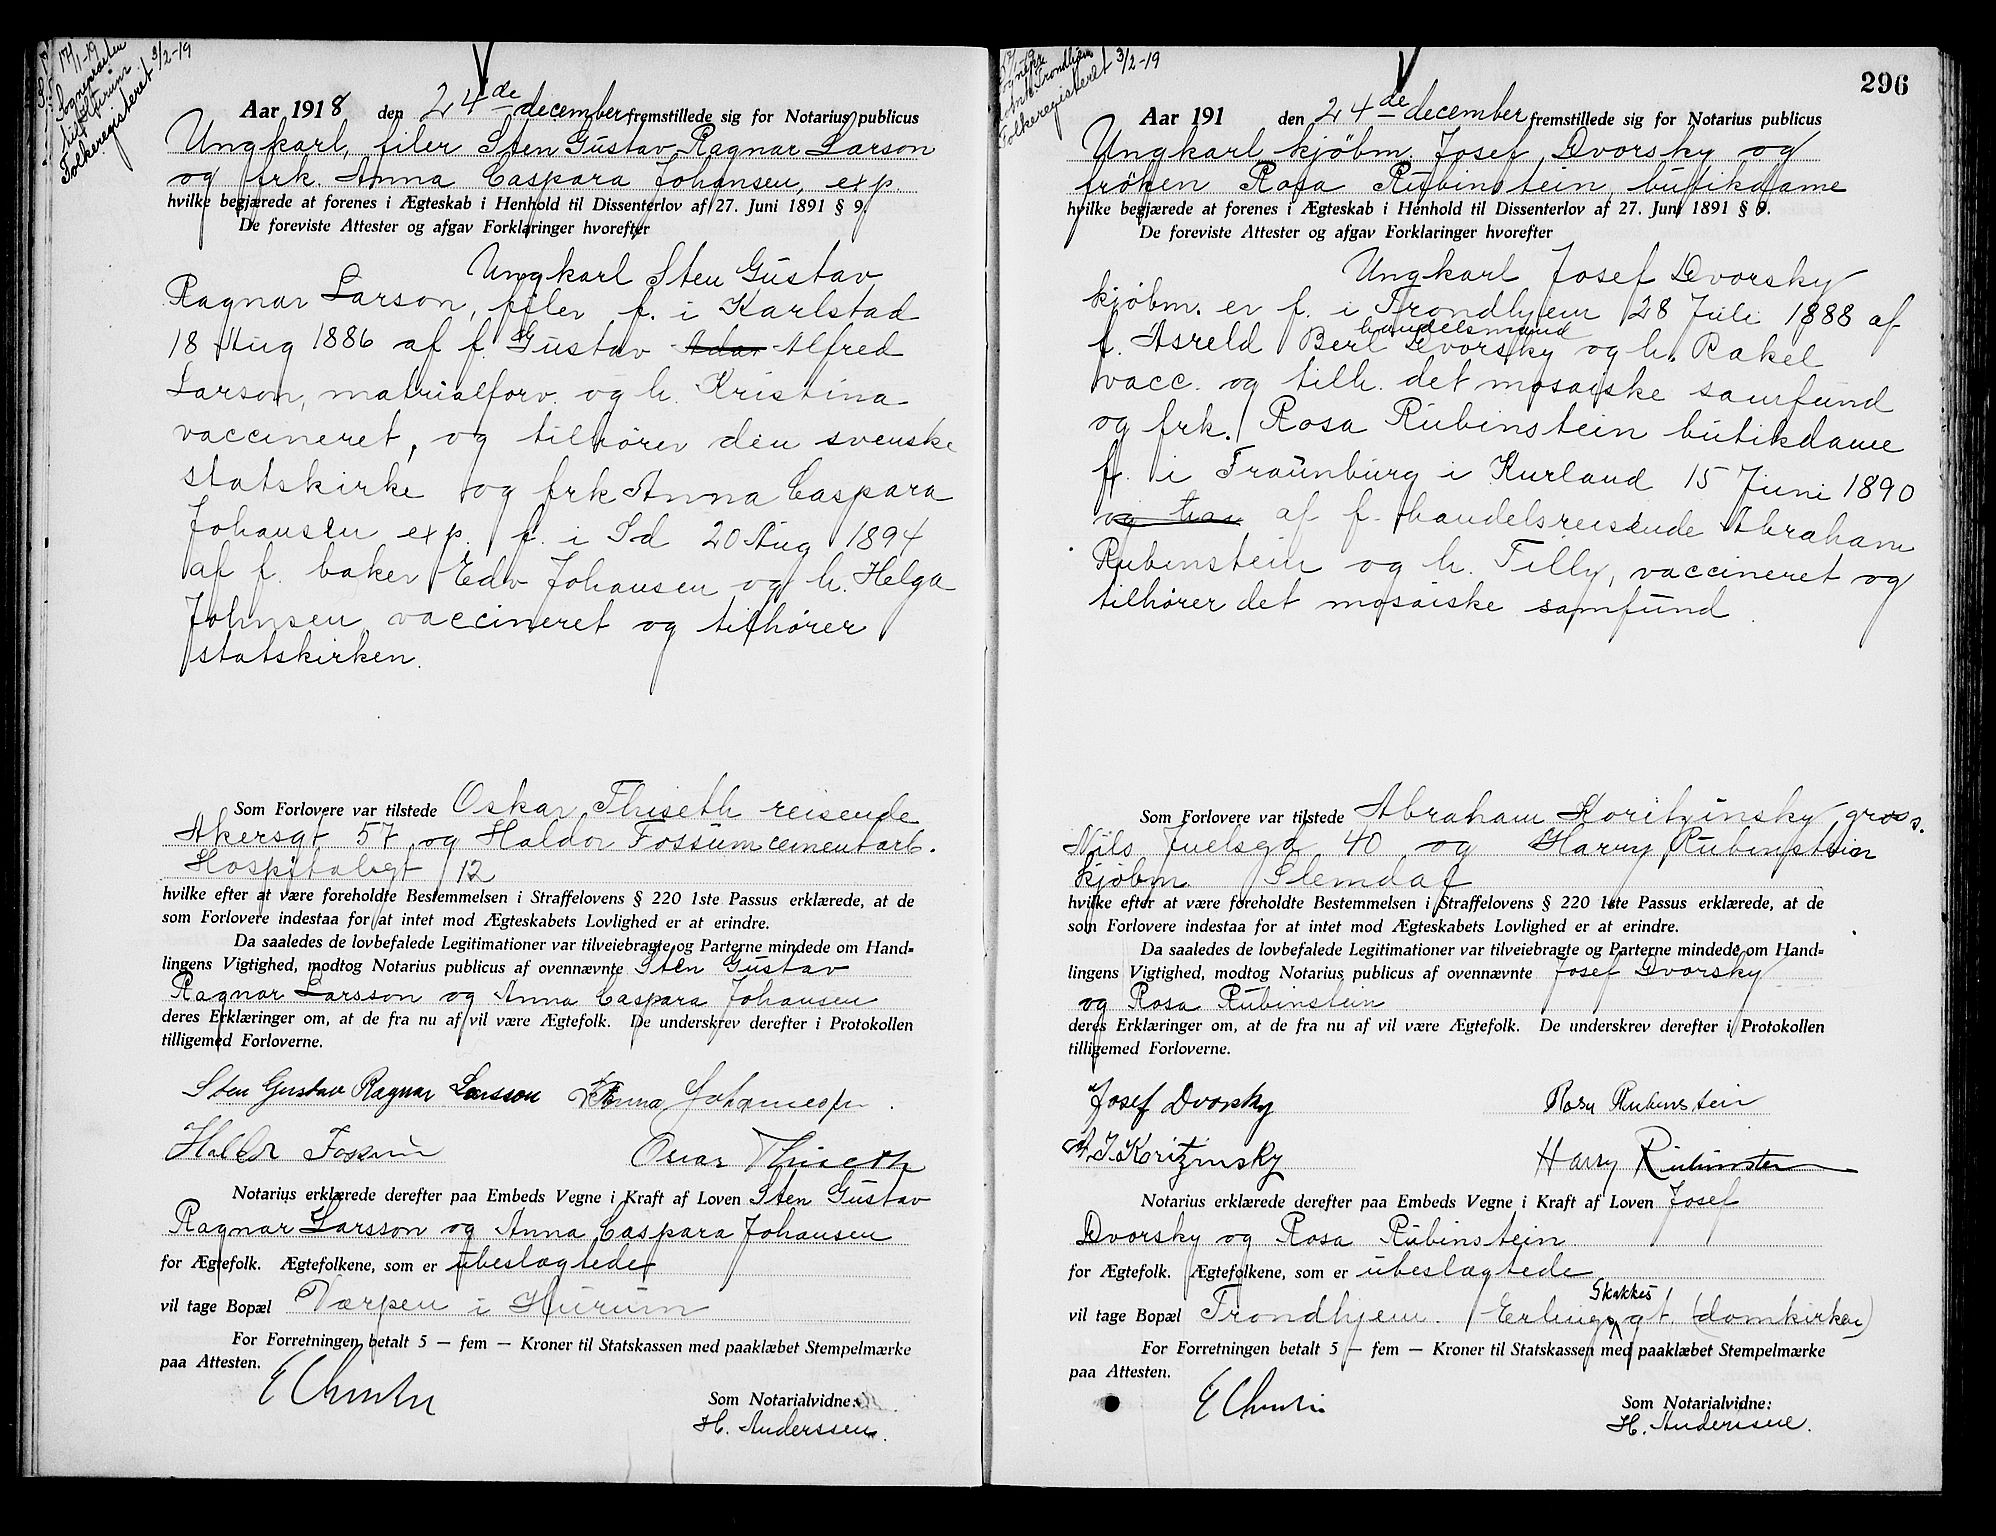 17/1-19
Sogneprästen
til Hurum
Folkeregisteret 3/2-19
Aar 1918 den 24de december fremstillede sig for Notarius publicus
Ungkarl, filer Sten Gustav Ragnar Larson
og frk. Anna Caspara Johansen, exp.
hvilke begjærede at forenes i Ægteskab i Henhold til Dissenterlov af 27. Juni 1891 § 9.
De foreviste Attester og afgav Forklaringer hvorefter
Ungkarl Sten Gustav
Ragnar Larson, filer f. i Karlstad
18 Aug 1886 af f. Gustav Adar Alfred
Larson, matrialforv. og h. Kristina
vaccineret, og tilhører den svenske
statskirke og frk Anna Caspara
Johansen exp. f. i Sd 20 Aug 1894
af f. baker Edv Johansen og h. Helga
Johnsen vaccineret og tilhører
statskirken.
Som Forlovere var tilstede Oskar Thiseth reisende
Akersgt 57 og Haldor Fossum cementarb.
Hospitalsgt 12
hvilke efter at være foreholdte Bestemmelsen i Straffelovens § 220 1ste Passus erklærede, at de
som Forlovere indestaa for at intet mod Ægteskabets Lovlighed er at erindre.
Da saaledes de lovbefalede Legitimationer var tilveiebragte og Parterne mindede om Hand-
lingens Vigtighed, modtog Notarius publicus af ovennævnte Sten Gustav
Ragnar Larsson og Anna Caspara Johansen
deres Erklæringer om, at de fra nu af vil være Ægtefolk. De underskrev derefter i Protokollen
tilligemed Forloverne.
Sten Gustav Ragnar Larsson Anna Johannesen.
Haldor Fossum Oscar Thiseth
Notarius erklærede derefter paa Embeds Vegne i Kraft af Loven Sten Gustav
Ragnar Larsson og Anna Caspara Johansen
for Ægtefolk. Ægtefolkene, som er ubeslægtede
vil tage Bopæl Værpen i Hurum
For Forretningen betalt 5 — fem — Kroner til Statskassen med paaklæbet Stempelmærke
paa Attesten.
E Christie
Som Notarialvidne:
H. Anderssen.
296
Trondhjem
Folkeregisteret 3/2-19
Aar 191 den 24de december fremstillede sig for Notarius publicus
Ungkarl kjøbm Josef Dvorsky og
fröken Rosa Rubinstein, butikdame
hvilke begjærede at forenes i Ægteskab i Henhold til Dissenterlov af 27. Juni 1891 § 9.
De foreviste Attester og afgav Forklaringer hvorefter
Ungkarl Josef Dvorsky
kjöbm. er f. i Trondhjem 28 Juli 1888 af
f. Asreld Berl handelsmand Dvorsky og h. Rakel
vacc. og tilh. det mosaiske samfund
og frk. Rosa Rubinstein butikdame
f. i Fraünburg i Kurland 15 Juni 1890
og har af f. handelsreisende Abraham
Rubinstein og h. Tilly, vaccineret og
tilhører det mosaiske samfund.
Som Forlovere var tilstede Abraham Koritzinsky gross.
Nils Juelsgd 40 og Harry Rubinstein
kjøbm. Slemdal
hvilke efter at være foreholdte Bestemmelsen i Straffelovens § 220 1ste Passus erklærede, at de
som Forlovere indestaa for at intet mod Ægteskabets Lovlighed er at erindre.
Da saaledes de lovbefalede Legitimationer var tilveiebragte og Parterne mindede om Hand-
lingens Vigtighed, modtog Notarius publicus af ovennævnte Josef Dvorsky
og Rosa Rubinstein
deres Erklæringer om, at de fra nu af vil være Ægtefolk. De underskrev derefter i Protokollen
tilligemed Forloverne.
Josef Dvorsky Rosa Rubinstein
A. I. Koritzinsky Harry Rubinstein
Notarius erklærede derefter paa Embeds Vegne i Kraft af Loven Josef
Dvorsky og Rosa Rubinstein
for Ægtefolk. Ægtefolkene, som er ubeslægtede
vil tage Bopæl Trondhjem. Erling Skakkes gt. (domkirken)
For Forretningen betalt 5 — fem — Kroner til Statskassen med paaklæbet Stempelmærke
paa Attesten.
E Christie
Som Notarialvidne:
H. Anderssen.